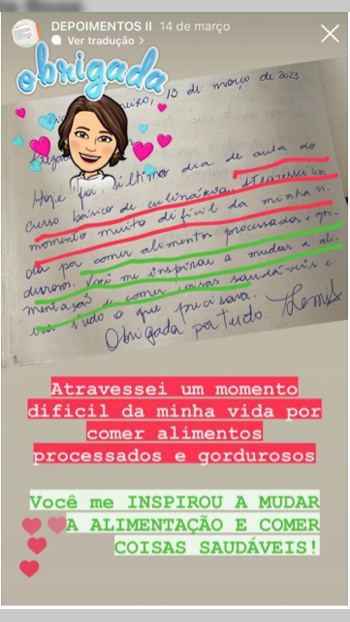 DEPOIMENTOS II 14 de março
Ver tradução >
obrigada
neiro, 13 de março de 2023
Hoje foi o último dia de aula do
curso básico de culinária. Atravessei um
momento muito difícil da minha vi-
da por comer alimentos processados e gor-
durosos. Você me inspirou a mudar a ali-
mentação e comer coisas saudáveis e
era tudo o que precisava.
Obrigada por tudo
Atravessei um momento
dificil da minha vida por
comer alimentos
processados e gordurosos
Você me INSPIROU A MUDAR
A ALIMENTAÇÃO E COMER
COISAS SAUDÁVEIS!